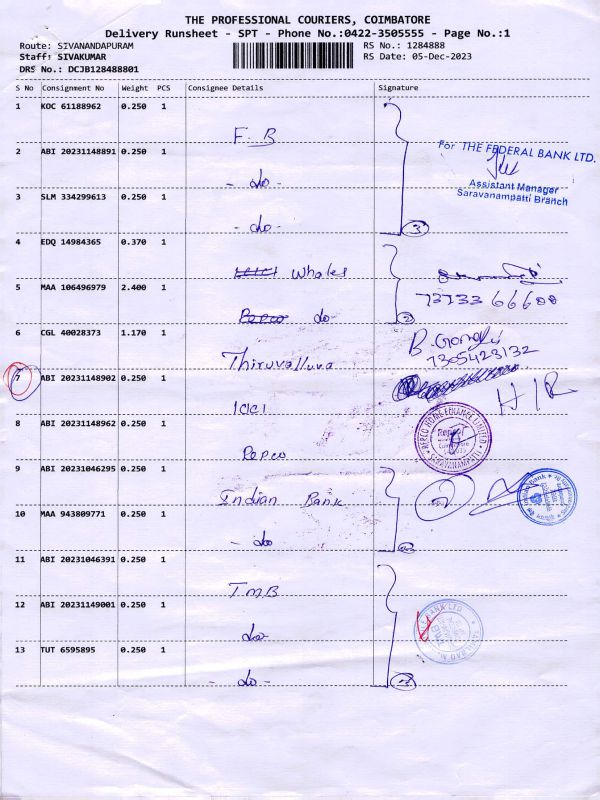 THE PROFESSIONAL COURIERS, COIMBATORE
Delivery Runsheet - SPT - Phone No.:0422-3505555 - Page No.:1
Route: SIVANANDAPURAM RS No.: 1284888
Staff: SIVAKUMAR RS Date: 05-Dec-2023
DRS No.: DCJB128488801
S No Consignment No Weight PCS Consignee Details Signature
1 KOC 61188962 0.250 1
F. B
For THE FEDERAL BANK LTD.
2 ABI 20231148891 0.250 1
- do -
Assistant Manager
Saravanampatti Branch
3 SLM 334299613 0.250 1
- do - 3
4 EDQ 14984365 0.370 1
Whales
5 MAA 106496979 2.400 1
73733 66600
Repco do 2
6 CGL 40028373 1.170 1
B. Gomathi
7305423132
Thiruvalluva
7 ABI 20231148902 0.250 1
ICICI
8 ABI 20231148962 0.250 1
REPCO HOME FINANCE LIMITED
SARAVANAMPATTI
Repco
9 ABI 20231046295 0.250 1
Indian Bank
10 MAA 943809771 0.250 1
- do
11 ABI 20231046391 0.250 1
TMB
12 ABI 20231149001 0.250 1
do
13 TUT 6595895 0.250 1
- do -